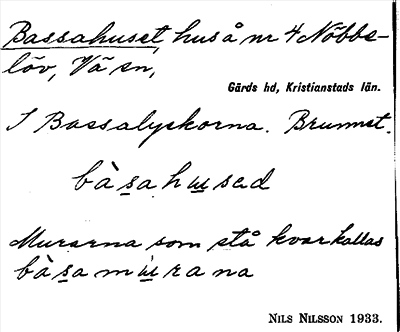 Bassahuset, hus å nr 4 Nöbbe-
löv, Vä sn,
Gärds hd, Kristianstads län.
I Bassalyckorna. Brunnet.
bàsahusəd
Murarna som stå kvar kallas
bàsamùrana
NILS NILSSON 1933.